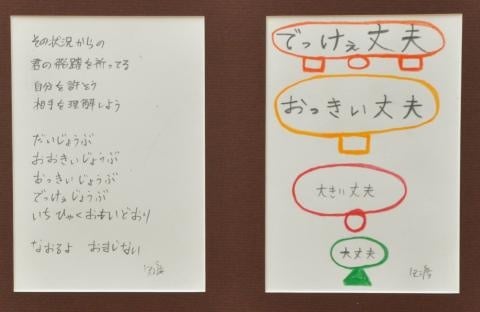 その状況からの
君の飛躍を祈ってる
自分を許そう
相手を理解しよう
だいじょうぶ
おおきいじょうぶ
おっきいじょうぶ
でっけぇじょうぶ
いちひゃくおもいどおり
なおるよ おまじない
でっけぇ丈夫
おっきい丈夫
大きい丈夫
大丈夫